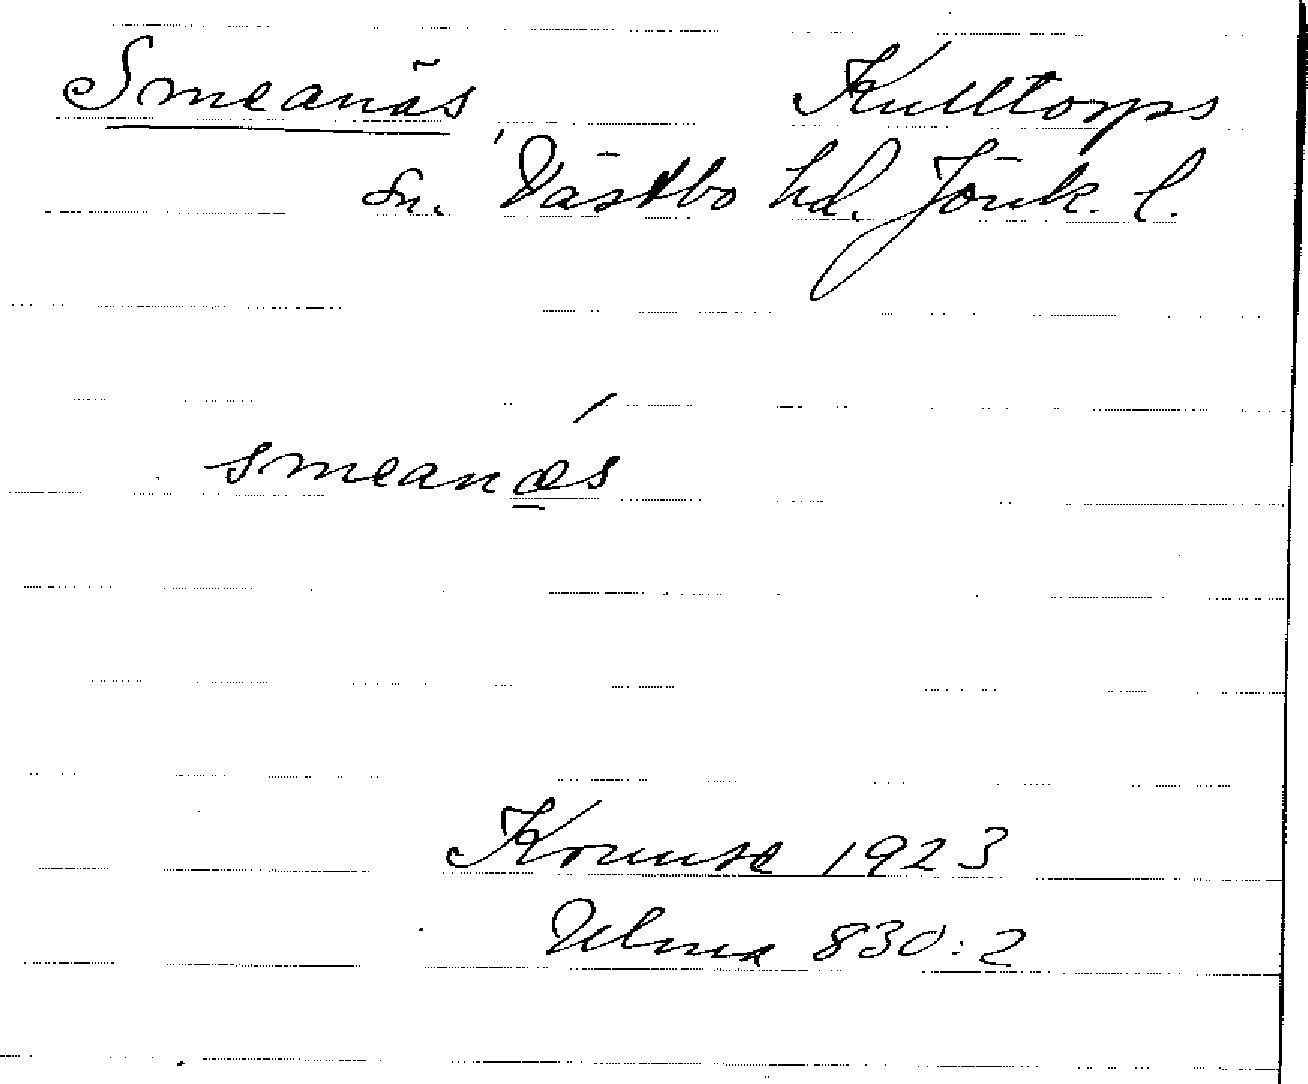 Smeanäs Kulltorps
sn. Västbo hd. Jönk. l.
smeanæs
1923
Ulma 830:2